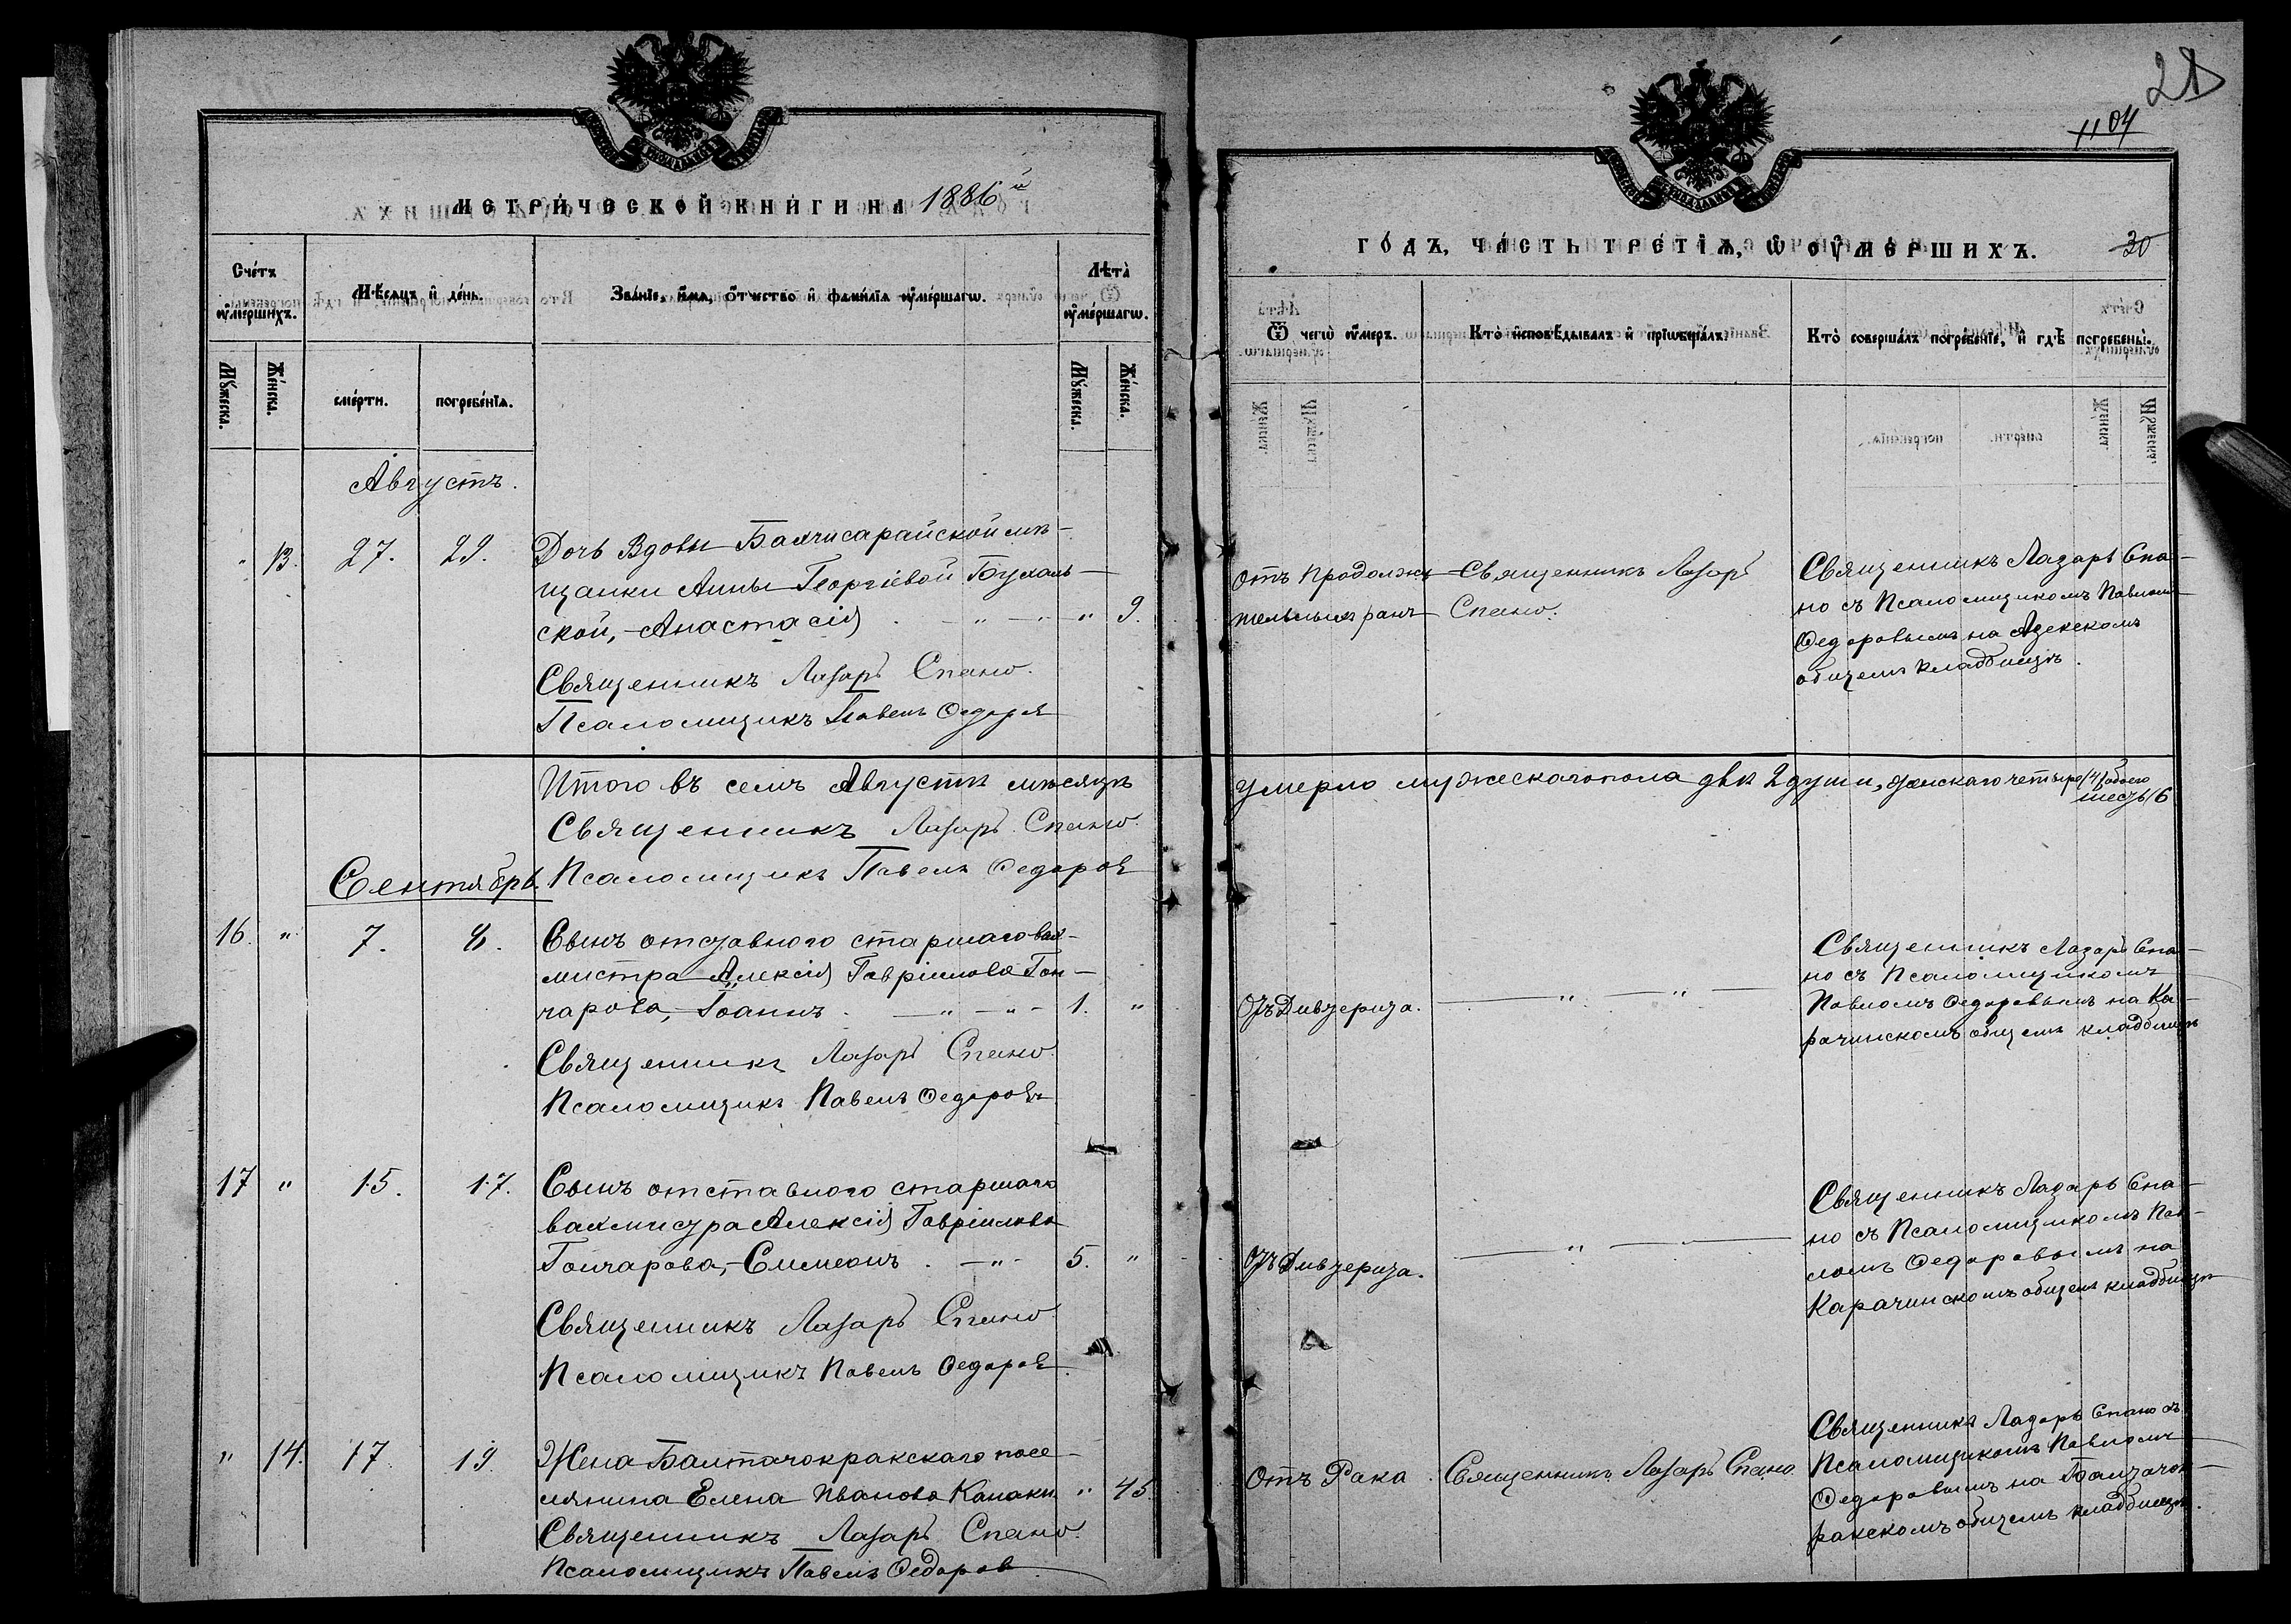 28
1104
МЕТРИ́ЧЕСКОЙ КНИ́ГИ НА 1886й
ГО́ДЪ, ЧА́СТЬ ТРЕ́ТІЯ, Ѽ ОУ҆МЕ́РШИХЪ.
30
Сче́тъ оу҆ме́ршихъ.
Мѣ́сяцъ и҆ де́нь.
Зва́нїе, и҆́мя, ѻ҆́тчество и҆ фами́лїя оу҆ме́ршагѡ.
Лѣ́та оу҆ме́ршагѡ.
Ѿ чегѡ̀ оу҆́меръ.
Кто̀ и҆сповѣ́дывалъ и҆ прїѡбща́лъ.
Кто̀ соверша́лъ погребе́нїе, и҆ гдѣ̀ погребены̀.
Мꙋ́жеска.
Же́нска.
сме́рти.
погребе́нїя.
Мꙋ́жеска.
Же́нска.
Августъ.
" 13. 27. 29.
Дочь вдовы Бахчисарайской мѣ-
щанки Анны Георгіевой
ской, - Анастасія " 9.
Священникъ Лазарь Спано.
Псаломщикъ Павелъ Федоровъ
Отъ продолжи-
тельныхъ ранъ
Священникъ Лазарь
Спано.
Священникъ Лазарь Спа-
но съ Псаломщикомъ Павломъ
Федоровымъ на Азекскомъ
общемъ кладбищѣ.
Итого въ семъ Августѣ мѣсяцѣ
умерло мужескаго пола двѣ 2 души, женскаго четыре (4) обоего
шесть (6
Священникъ Лазарь Спано.
Псаломщикъ Павелъ Федоровъ
Сентябрь.
16. " 7. 8.
Сынъ отставного старшаго вах-
мистра Алексія Гавріилова Гон-
чарова, - Іоаннъ. 1. "
Священникъ Лазарь Спано.
Псаломщикъ Павелъ Федоровъ
Отъ Дивтерита.
Священникъ Лазарь Спа-
но съ Псаломщикомъ
Павломъ Федоровымъ на Ка-
рачинскомъ общемъ кладбищѣ
17 " 15. 17.
Сынъ отставного старшаго
вахмистра Алексія Гавріилова
Гончарова, - Симеонъ. 5. "
Священникъ Лазарь Спано.
Псаломщикъ Павелъ Федоровъ.
Отъ Дивтерита.
Священникъ Лазарь Спа-
но съ Псаломщикомъ Пав-
ломъ Федоровымъ на
Карачинскомъ общемъ кладбищѣ
" 14. 17. 19.
Жена Балтачокракскаго посе-
лянина Елена Иванова Канаки " 45.
Священникъ Лазарь Спано.
Псаломщикъ Павелъ Федоров.
Отъ Рака.
Священникъ Лазарь Спано
Священникъ Лазарь Спано съ
Псаломщикомъ Павломъ
Федоровымъ на Балтачок-
ракскомъ общемъ кладбищѣ.